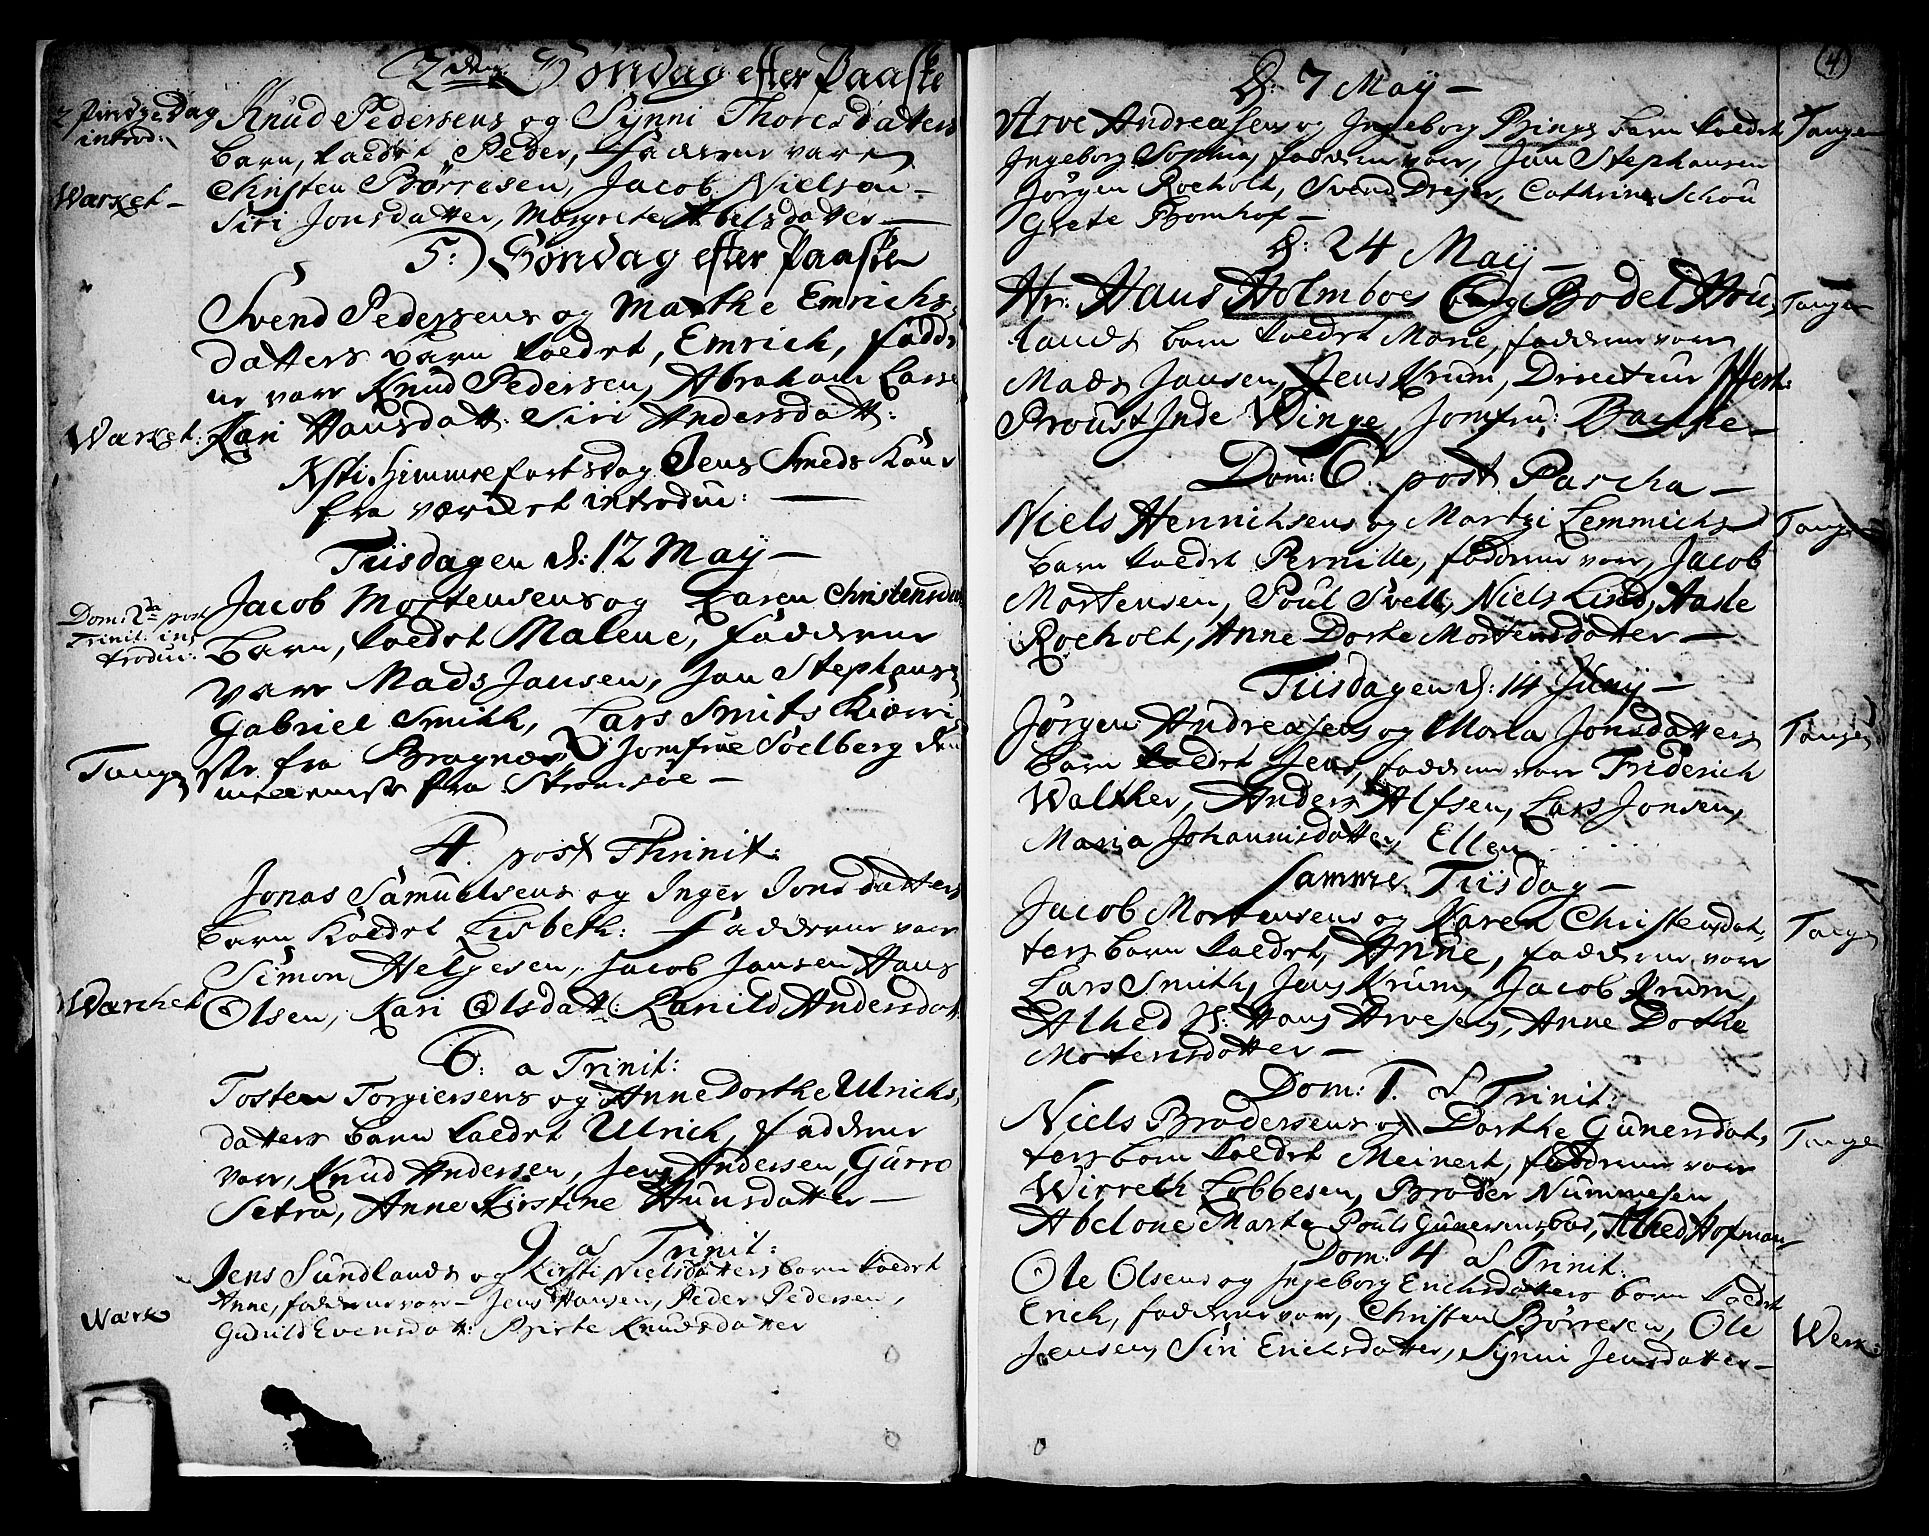 2den Söndag efter Paaske
2 Pindse Dag
introd:
Knud Pedersens og Synni Thoresdatters
barn, kaldet Peder, Fadderne vare
Christen Börresen, Jacob Nielsen
Warket -
Siri Jonsdatter, Margrete Abelsdatter -
5: Söndag efter Paaske
Svend Pedersens og Marthe Emrichs
datters barn kaldet, Emrich, Fadde
ne varr Knud Pedersen, Abraham Larse
Warket: Kari Hansdatt: Siri Andersdatt:
Christi Himmelfartsdag Jens Smeds Kone
fra værket introdu: -
Tiisdagen d: 12 May -
Jacob Mortensens og Karen Christensdat
Dom: 2da post
Trinit: in
trodu:
barn, kaldet Malene, Fadderne
varr Mads Jansen, Jan Stephans
Gabriel Smith, Lars Smits
fra Bragnæs, Jomfrue Soelberg
Tangen
fra Strömsöe -
4. post Thrinit:
Jonas Samuelsens og Inger Jonsdatters
barn kaldet Lisbeth: Fadderne varr
Simon Helgesen, Jacob Jansen Hans
Warchet
Olsen, Kari Olsdatt: Ranild Andersdat
6: a Trinit:
Tosten Torgiersens og Anne Dorthe Ulrichs
datters barn kaldet Ulrich, Fadderne
varr, Knud Andersen, Jens Andersen, Gurro
Setra, Anne Kirstine Hansdatter -
9 a Trinit:
Jens Sundlands og Kirsti Nielsdatters barn kaldet
Anne, fadderne varr - Jens Hansen, Peder Pedersen,
Wark
Gunild Evensdatt: Birte Knudsdatter
4
d: 7 May -
Arve Andreasens og Ingeborg Bings barn kaldet
Tangen
Ingeborg Sophia, fadderne varr, Jan Stephansen
Jörgen Roeholt, Svend Drejer, Cathrine Schou
Grete Bromhof -
d: 24 May -
Hr: Hans Holmboes og Bodel Hou
Tangen
lands barn kaldet Marie, fadderne varr
Mads Jansen, Jens Krum, Directeur
Proust Inde Winge, Jomfru:
Dom: 6. post Pascha -
Niels Henrichsens og Martzi Lemmichs
Tangen
barn kaldet Pernille, fadderne varr, Jacob
Mortensen, Poul Svelt, Niels Lind, Aasle
Roeholt, Anne Dorthe Mortensdatter -
Tiisdagen d: 14 Juny -
Jörgen Andreasens og Maria Jonsdatters
Tangen
barn kaldet Jens, fadderne varr Friderich
Walther, Anders Alfsen, Lars Jonsen,
Maria Johannisdatter, Ellen . . . . .
Samme Tiisdag -
Jacob Mortensens og Karen Christensdat
Tangen
ters barn kaldet, Anne, fadderne varr
Lars Smith, Jens Krum, Jacob Krum,
Alhed Sl: Hans Arvesens, Anne Dorthe
Mortensdatter -
Dom: 1. a Trinit:
Niels Brodersens og Dorthe Gunersdat,
Tangen
ters barn kaldet Meinert, fadderne varr
Wirreth Lobbesen, Broder Nummesen,
Abelone Marte Pouls Gunersens, Alhed Hofman
Dom: 4 a Trinit:
Ole Olsens og Ingeborg Erichsdatters barn kaldet
Erich, fadderne varr, Christen Börresen, Ole
Werk:
Jensen, Siri Erichsdatter, Synni Jensdatter -